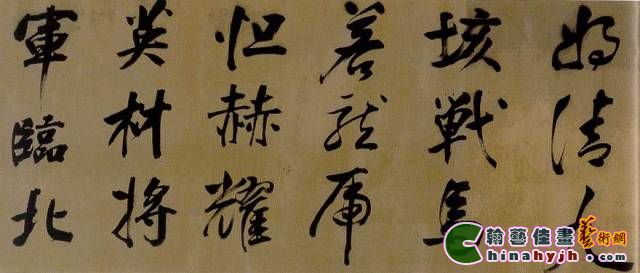 將清九
垓戰馬
若龍虎
烜赫耀
英材將
軍臨北
翰藝佳畫藝術網
Chinahyjh.com